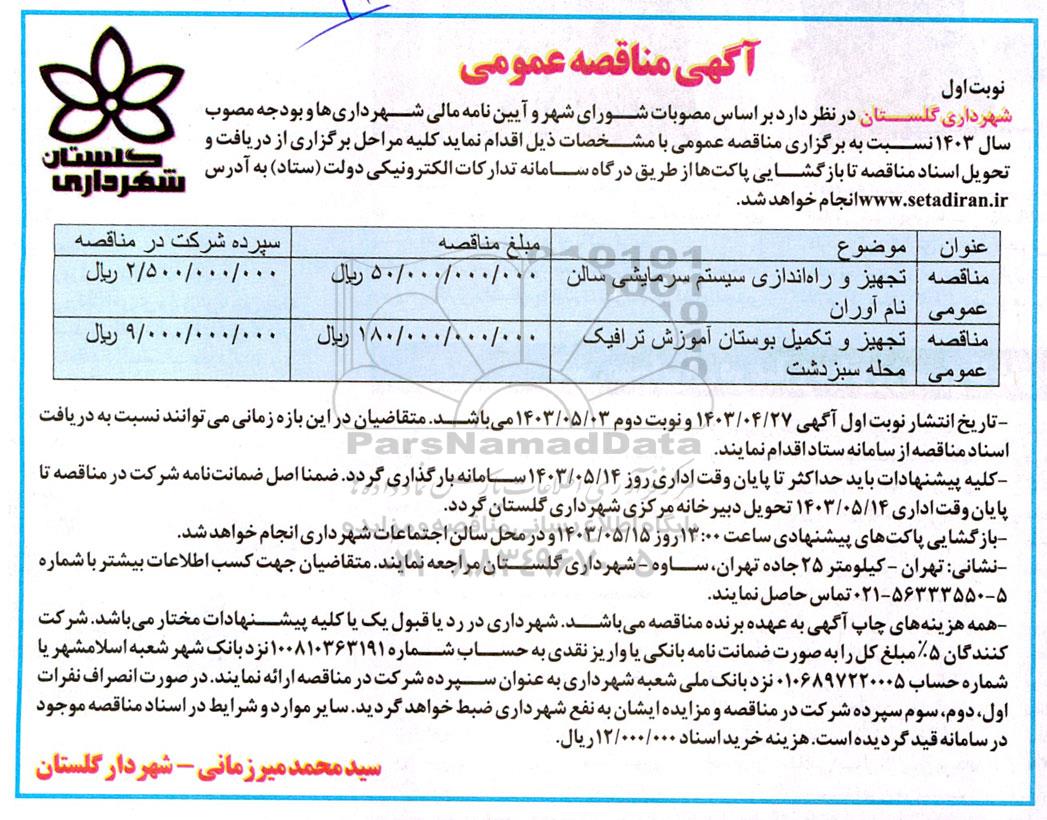 آگهی مناقصه عمومی
نوبت اول
گلستان
شهرداری
شهرداری گلستان در نظر دارد بر اساس مصوبات شورای شهر و آیین نامه مالی شهرداری‌ها و بودجه مصوب
سال ۱۴۰۳ نسبت به برگزاری مناقصه عمومی با مشخصات ذیل اقدام نماید کلیه مراحل برگزاری از دریافت و
تحویل اسناد مناقصه تا بازگشایی پاکت‌ها از طریق درگاه سامانه تدارکات الکترونیکی دولت (ستاد) به آدرس
www.setadiran.ir انجام خواهد شد.
عنوان موضوع مبلغ مناقصه سپرده شرکت در مناقصه
مناقصه تجهیز و راه‌اندازی سیستم سرمایشی سالن ۵۰/۰۰۰/۰۰۰/۰۰۰ ریال ۲/۵۰۰/۰۰۰/۰۰۰ ریال
عمومی نام آوران
مناقصه تجهیز و تکمیل بوستان آموزش ترافیک ۱۸۰/۰۰۰/۰۰۰/۰۰۰ ریال ۹/۰۰۰/۰۰۰/۰۰۰ ریال
عمومی محله سبزدشت
-تاریخ انتشار نوبت اول آگهی ۱۴۰۳/۰۴/۲۷ و نوبت دوم ۱۴۰۳/۰۵/۰۳ می‌باشد. متقاضیان در این بازه زمانی می‌توانند نسبت به دریافت
اسناد مناقصه از سامانه ستاد اقدام نمایند.
ParsNamadData
-کلیه پیشنهادات باید حداکثر تا پایان وقت اداری روز ۱۴۰۳/۰۵/۱۴ سامانه بارگذاری گردد. ضمنا اصل ضمانت‌نامه شرکت در مناقصه تا
پایان وقت اداری ۱۴۰۳/۰۵/۱۴ تحویل دبیرخانه مرکزی شهرداری گلستان گردد.
پایگاه اطلاع رسانی مناقصه و مزایده
-بازگشایی پاکت‌های پیشنهادی ساعت ۱۳:۰۰ روز ۱۴۰۳/۰۵/۱۵ و در محل سالن اجتماعات شهرداری انجام خواهد شد.
-نشانی: تهران - کیلومتر ۲۵ جاده تهران، ساوه - شهرداری گلستان مراجعه نمایند. متقاضیان جهت کسب اطلاعات بیشتر با شماره
۰۲۱-۵۶۳۳۳۵۵۰-۵ تماس حاصل نمایند.
-همه هزینه‌های چاپ آگهی به عهده برنده مناقصه می‌باشد. شهرداری در رد یا قبول یک یا کلیه پیشنهادات مختار می‌باشد. شرکت
کنندگان ۵٪ مبلغ کل را به صورت ضمانت نامه بانکی یا واریز نقدی به حساب شماره ۱۰۰۸۱۰۳۶۳۱۹۱ نزد بانک شهر شعبه اسلامشهر یا
شماره حساب ۰۱۰۶۸۹۷۲۲۰۰۰۵ نزد بانک ملی شعبه شهرداری به عنوان سپرده شرکت در مناقصه ارائه نمایند. در صورت انصراف نفرات
اول، دوم، سوم سپرده شرکت در مناقصه و مزایده ایشان به نفع شهرداری ضبط خواهد گردید. سایر موارد و شرایط در اسناد مناقصه موجود
در سامانه قید گردیده است. هزینه خرید اسناد ۱۲/۰۰۰/۰۰۰ ریال.
سید محمد میرزمانی - شهردار گلستان